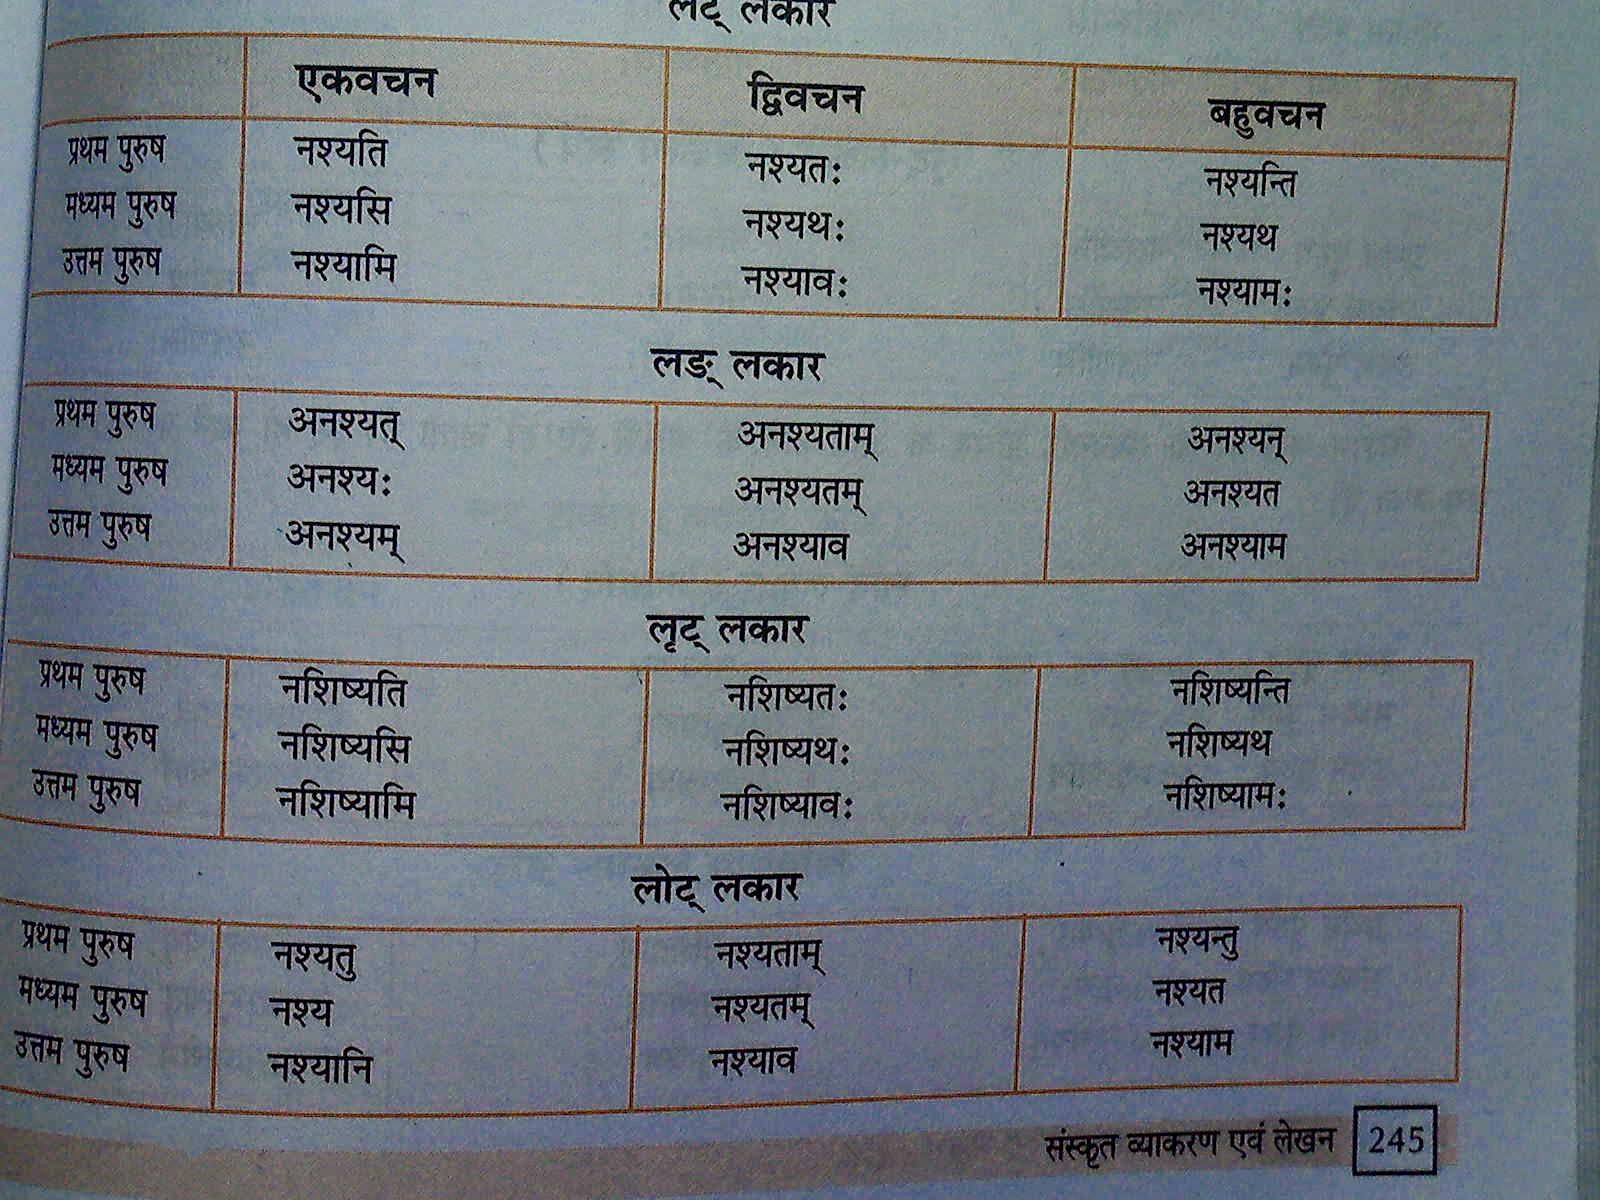 लट् लकार
एकवचन द्विवचन बहुवचन
प्रथम पुरुष नश्यति नश्यतः नश्यन्ति
मध्यम पुरुष नश्यसि नश्यथः नश्यथ
उत्तम पुरुष नश्यामि नश्यावः नश्यामः
लङ् लकार
प्रथम पुरुष अनश्यत् अनश्यताम् अनश्यन्
मध्यम पुरुष अनश्यः अनश्यतम् अनश्यत
उत्तम पुरुष अनश्यम् अनश्याव अनश्याम
लृट् लकार
प्रथम पुरुष नशिष्यति नशिष्यतः नशिष्यन्ति
मध्यम पुरुष नशिष्यसि नशिष्यथः नशिष्यथ
उत्तम पुरुष नशिष्यामि नशिष्यावः नशिष्यामः
लोट् लकार
प्रथम पुरुष नश्यतु नश्यताम् नश्यन्तु
मध्यम पुरुष नश्य नश्यतम् नश्यत
उत्तम पुरुष नश्यानि नश्याव नश्याम
संस्कृत व्याकरण एवं लेखन 245